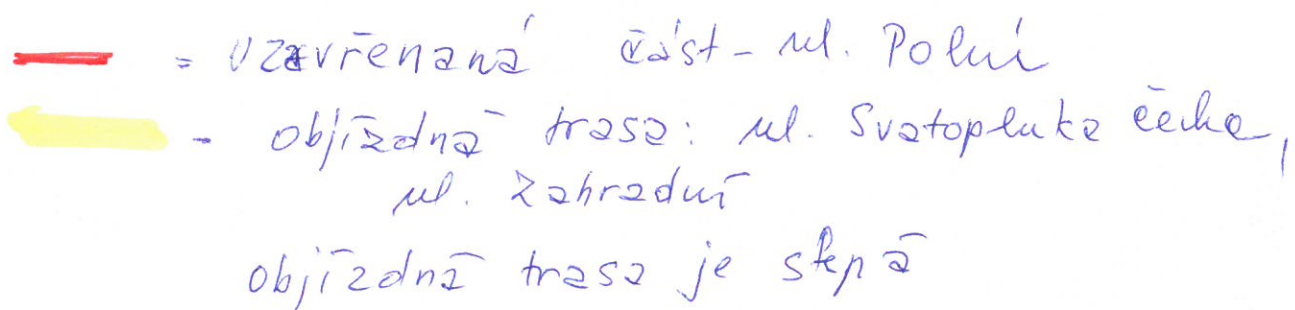 = Uzavřenaná část - ul. Polní
- objízdná trasa: ul. Svatopluka Čecha,
ul. Zahradní
objízdná trasa je slepá